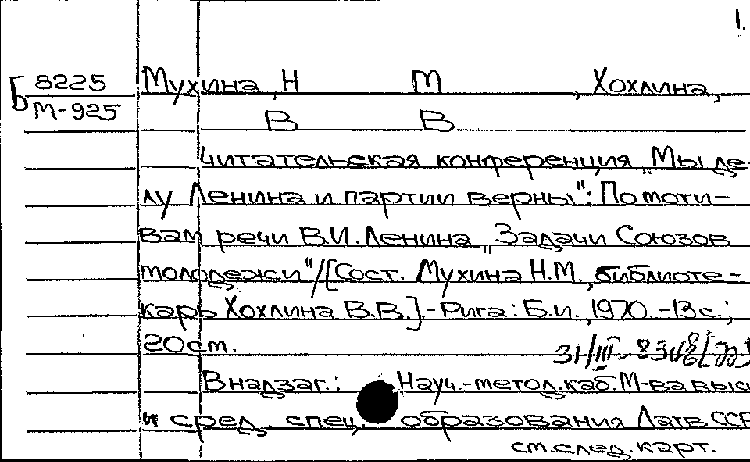 1.
8225 Мухина, Н М , Хохлина,
М-925 В В
Читательская конференция „Мы де-
лу Ленина и партии верны": По моти-
вам речи В.И.Ленина „Задачи Союзов
молодежи"/[Сост. Мухина Н.М, библиоте-
карь Хохлина В.В.]-Рига: Б.и., 1970.-13с.;
20см.
31/III-
В надзаг.: Науч.-метод.каб.М-ва высш
и сред. спец. образования Латв.ССР
см.след.карт.